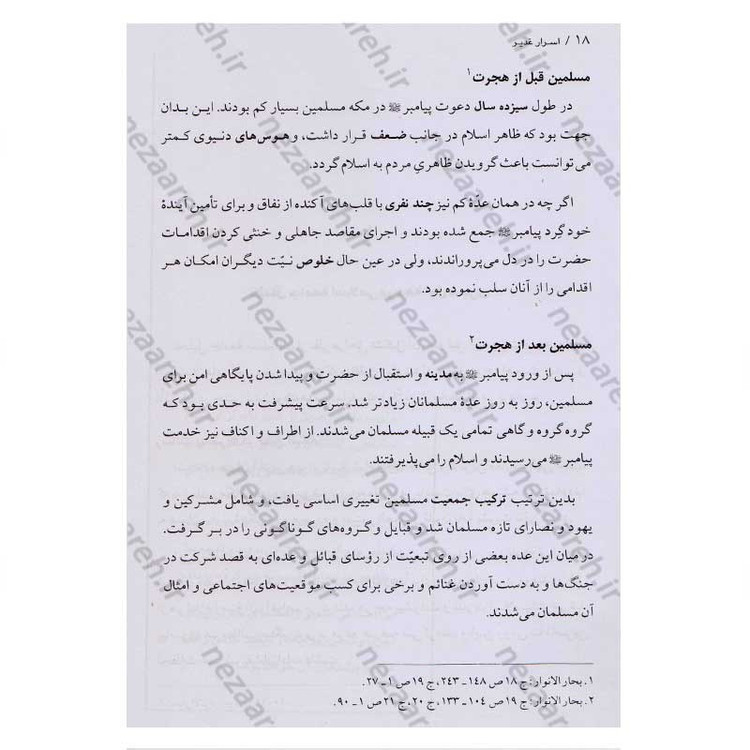 ۱۸ / اسرار غدیر
مسلمین قبل از هجرت۱
در طول سیزده سال دعوت پیامبر ﷺ در مکه مسلمین بسیار کم بودند. این بدان
جهت بود که ظاهر اسلام در جانب ضعف قرار داشت، و هوس‌های دنیوی کمتر
می‌توانست باعث گرویدن ظاهریِ مردم به اسلام گردد.
اگر چه در همان عدّۀ کم نیز چند نفری با قلب‌های آکنده از نفاق و برای تأمین آیندۀ
خود گِرد پیامبر ﷺ جمع شده بودند و اجرای مقاصد جاهلی و خنثی کردن اقدامات
حضرت را در دل می‌پروراندند، ولی در عین حال خلوص نیّت دیگران امکان هر
اقدامی را از آنان سلب نموده بود.
مسلمین بعد از هجرت۲
پس از ورود پیامبر ﷺ به مدینه و استقبال از حضرت و پیدا شدن پایگاهی امن برای
مسلمین، روز به روز عدۀ مسلمانان زیادتر شد. سرعت پیشرفت به حدی بود که
گروه گروه و گاهی تمامی یک قبیله مسلمان می‌شدند. از اطراف و اکناف نیز خدمت
پیامبر ﷺ می‌رسیدند و اسلام را می‌پذیرفتند.
بدین ترتیب ترکیب جمعیت مسلمین تغییری اساسی یافت، و شامل مشرکین و
یهود و نصارای تازه مسلمان شد و قبایل و گروه‌های گوناگونی را در بر گرفت.
در میان این عده بعضی از روی تبعیّت از رؤسای قبائل و عده‌ای به قصد شرکت در
جنگ‌ها و به دست آوردن غنائم و برخی برای کسب موقعیت‌های اجتماعی و امثال
آن مسلمان می‌شدند.
۱. بحار الانوار: ج ۱۸ ص ۱۴۸ ـ ۲۴۳، ج ۱۹ ص ۱ ـ ۲۷.
۲. بحار الانوار: ج ۱۹ ص ۱۰۴ ـ ۱۳۳، ج ۲۰، ج ۲۱ ص ۱ ـ ۹۰.
nezaareh.ir